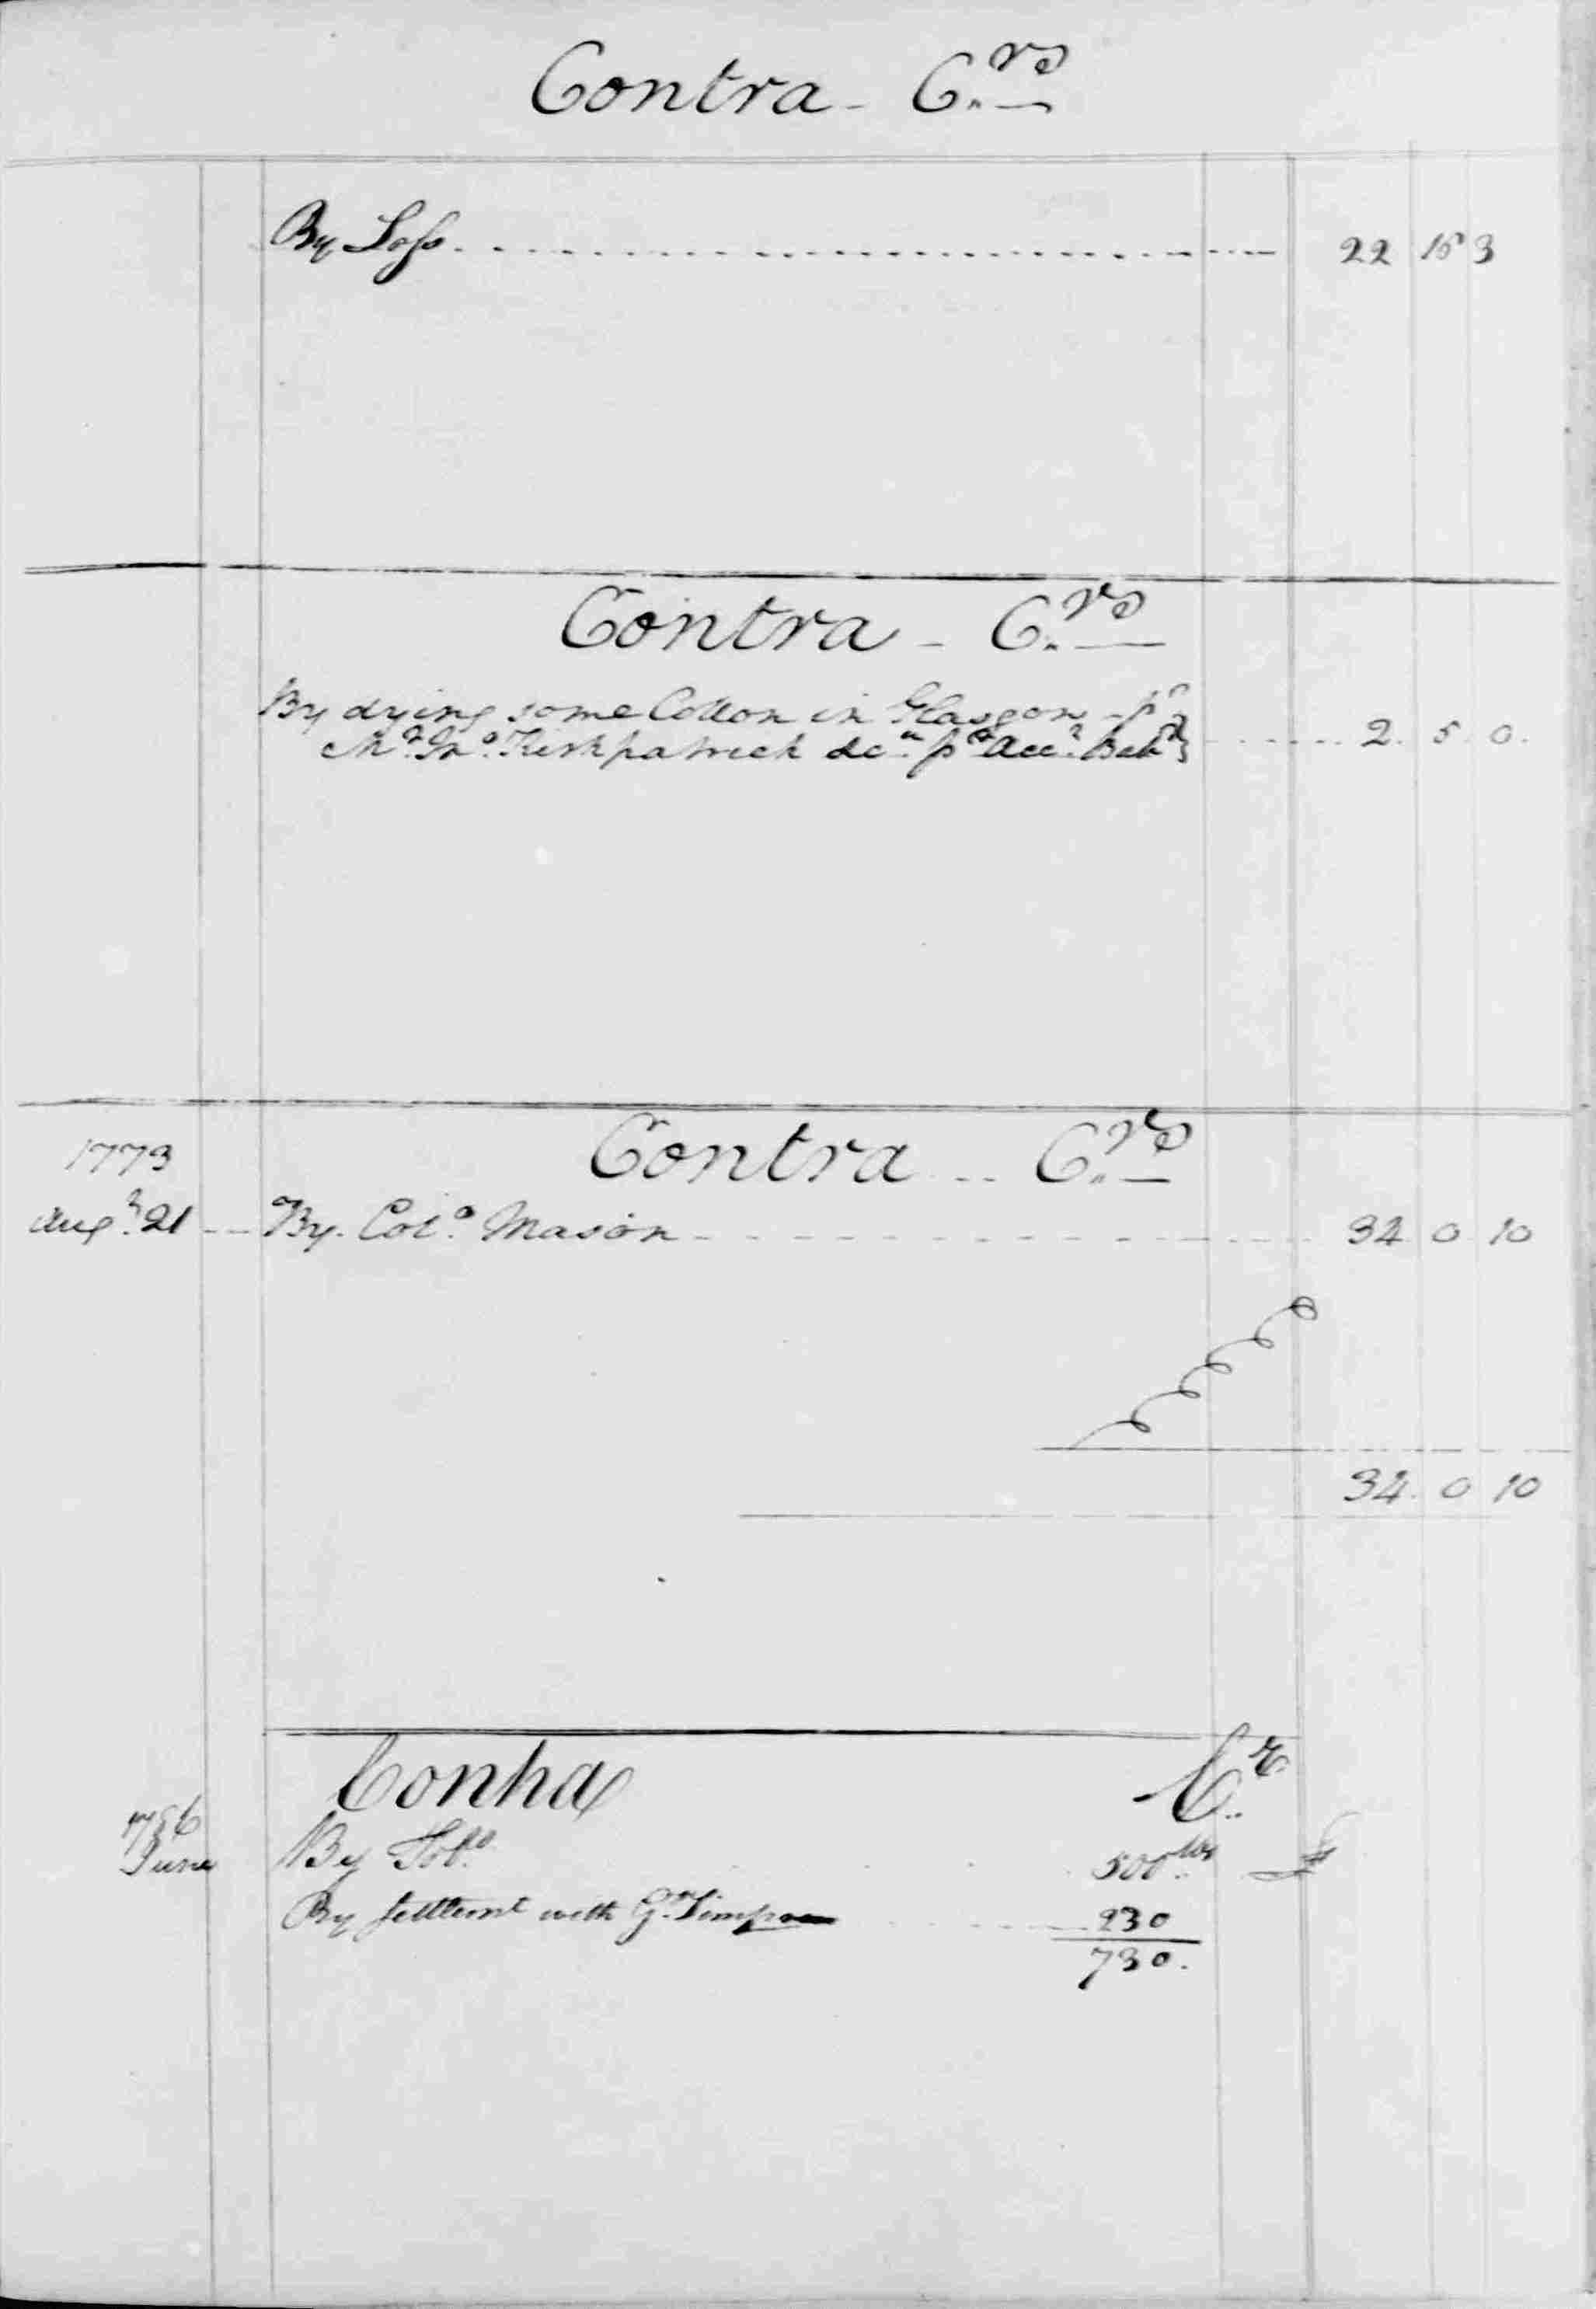 Contra - C.rs
By Loss 22
Contra - C.rs
By dying some Cotton in Glasgow - pr
Mr. Jno. Kirkpatrick &ca. pr Acct. 2. 5. 0.
Contra - C.rs
1773
Augt. 21 By. Colo. Mason 34 0 10
34. 0 10
Contra Cr.
1786
June By Tobo. 500 lbs
By settlemt with G. Simpson 230
730.